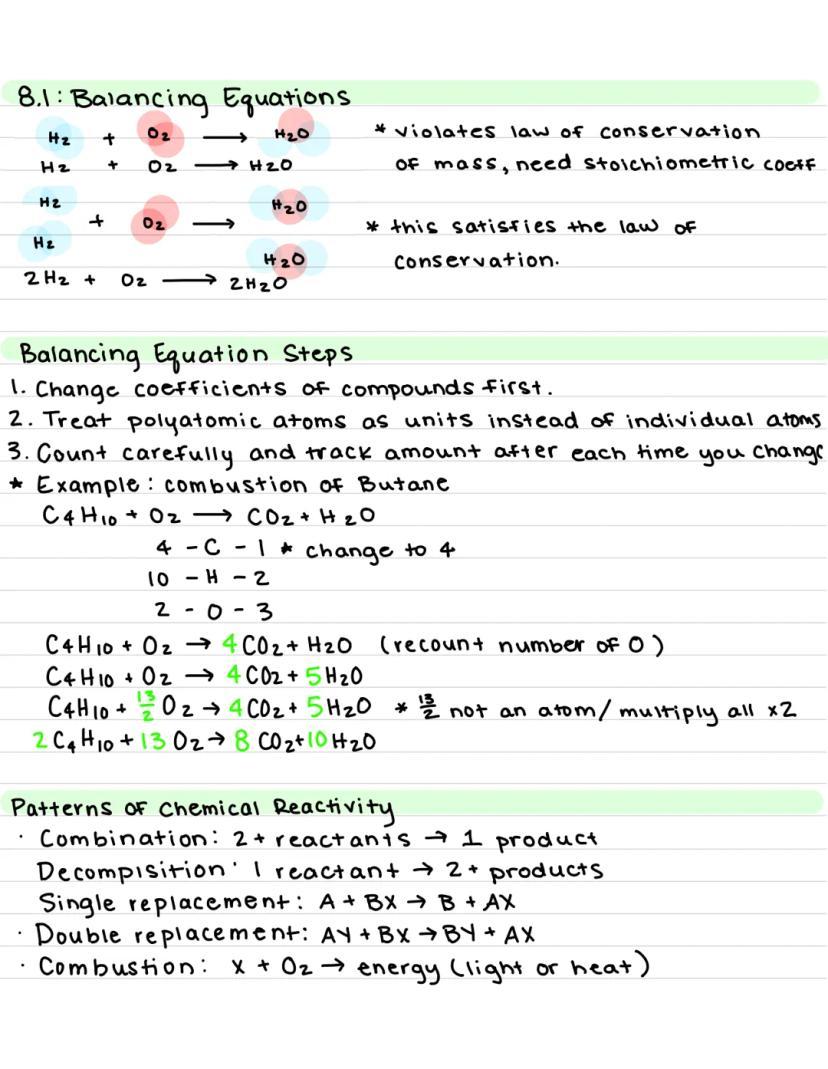 8.1: Balancing Equations
H2 + O2 → H2O * violates law of conservation
H2 + O2 → H2O of mass, need stoichiometric coeff
H2 H2O
+ O2 → * this satisfies the law of
H2 H2O conservation.
2H2 + O2 → 2H2O
Balancing Equation Steps
1. Change coefficients of compounds first.
2. Treat polyatomic atoms as units instead of individual atoms
3. Count carefully and track amount after each time you change
* Example: combustion of Butane
C4H10 + O2 → CO2 + H2O
4 - C - 1 * change to 4
10 - H - 2
2 - O - 3
C4H10 + O2 → 4CO2 + H2O (recount number of O)
C4H10 + O2 → 4CO2 + 5H2O
C4H10 + 13/2 O2 → 4CO2 + 5H2O * 13/2 not an atom/multiply all x2
2C4H10 + 13O2 → 8CO2 + 10H2O
Patterns of Chemical Reactivity
· Combination: 2+ reactants → 1 product
Decompisition· 1 reactant → 2+ products
Single replacement: A + BX → B + AX
· Double replacement: AY + BX → BY + AX
· Combustion: X + O2 → energy (light or heat)